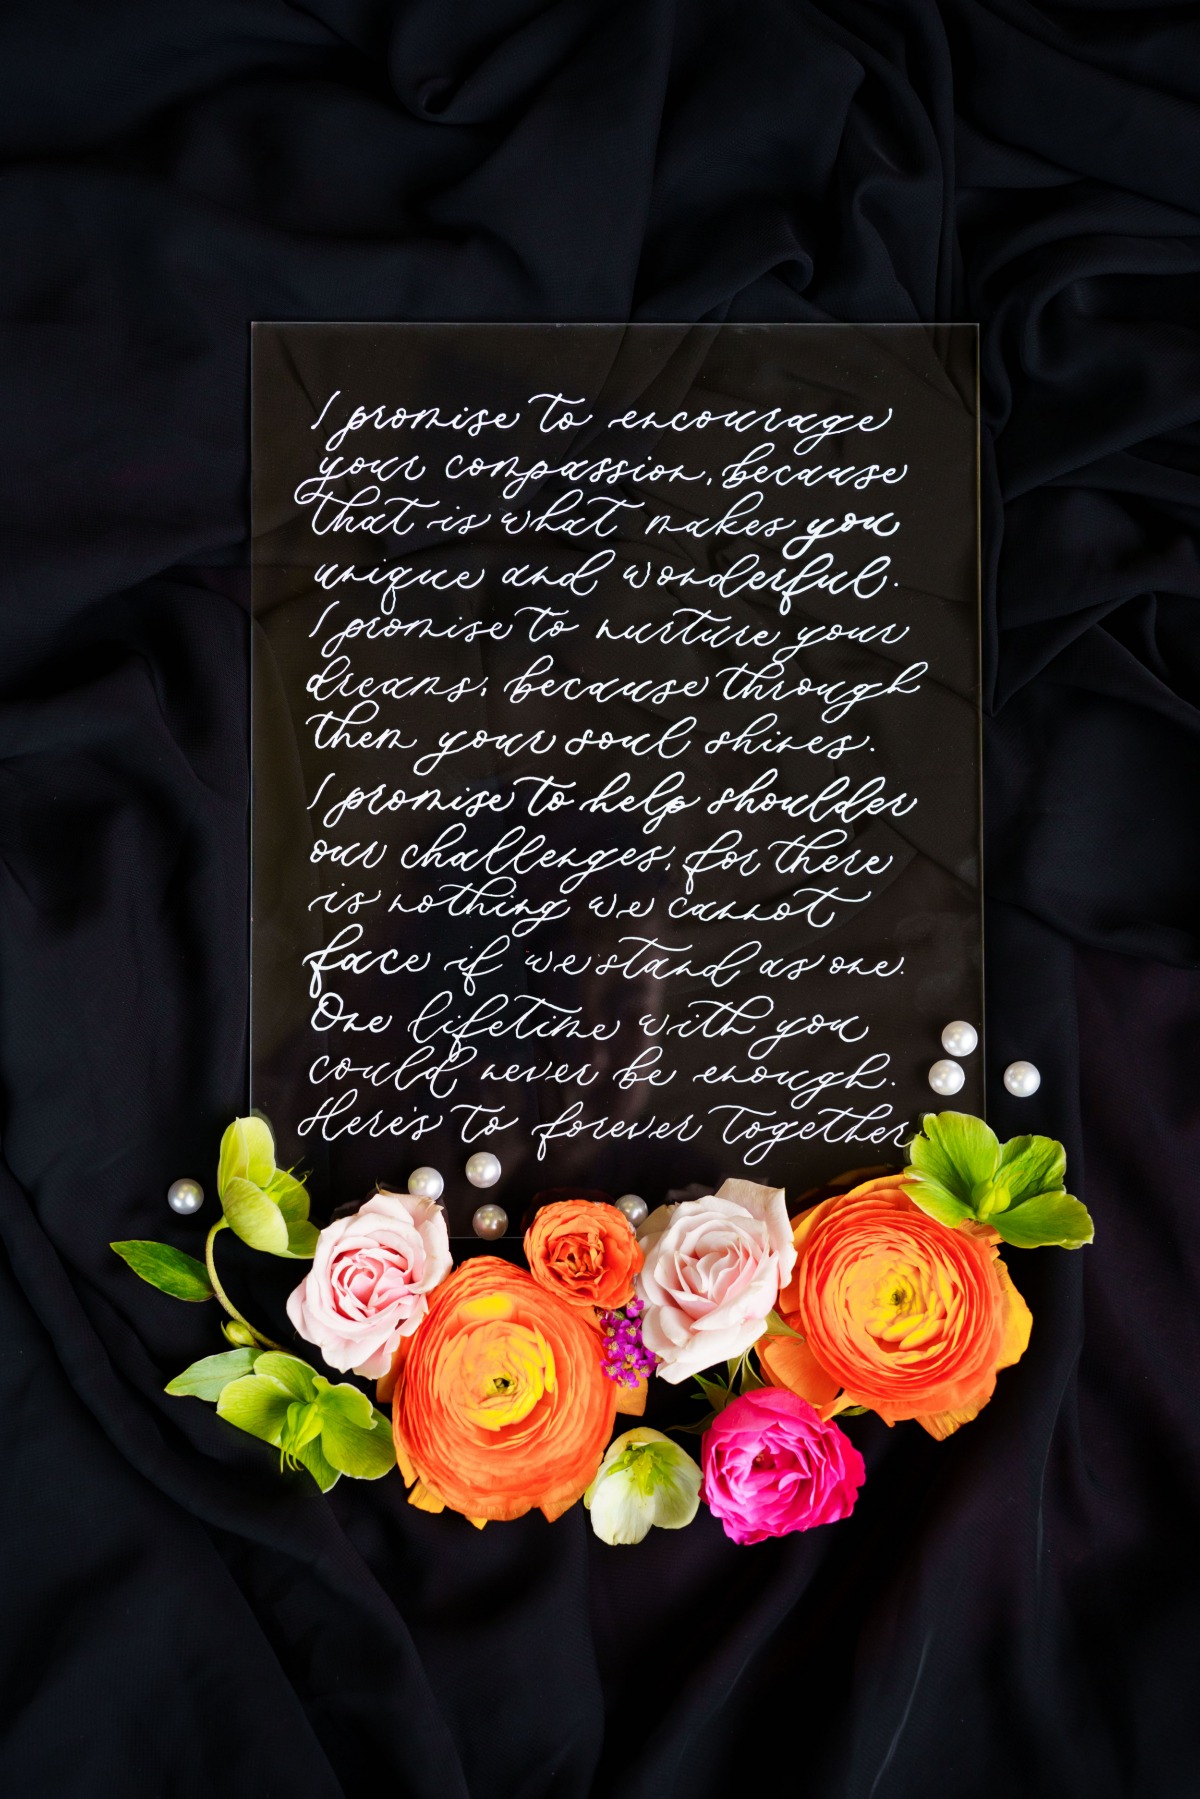 I promise to encourage
your compassion, because
that is what makes you
unique and wonderful.
I promise to nurture your
dreams; because through
them your soul shines.
I promise to help shoulder
our challenges; for there
is nothing we cannot
face if we stand as one.
One lifetime with you
could never be enough.
Here's to forever together